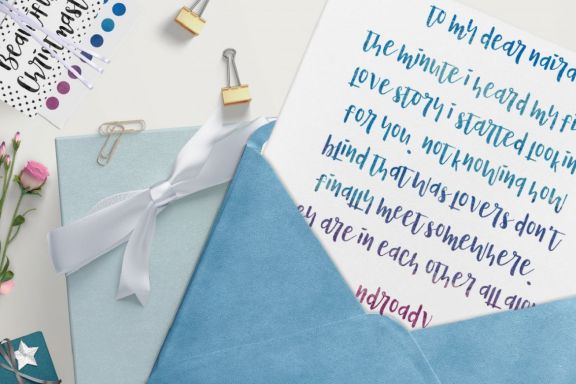 Beautiful
Christmast
To my dear naira
The minute i heard my fi
Love story i started lookin
for you, not knowing how
blind that was Lovers don't
finally meet somewhere.
ey are in each other all alon
ndroadv